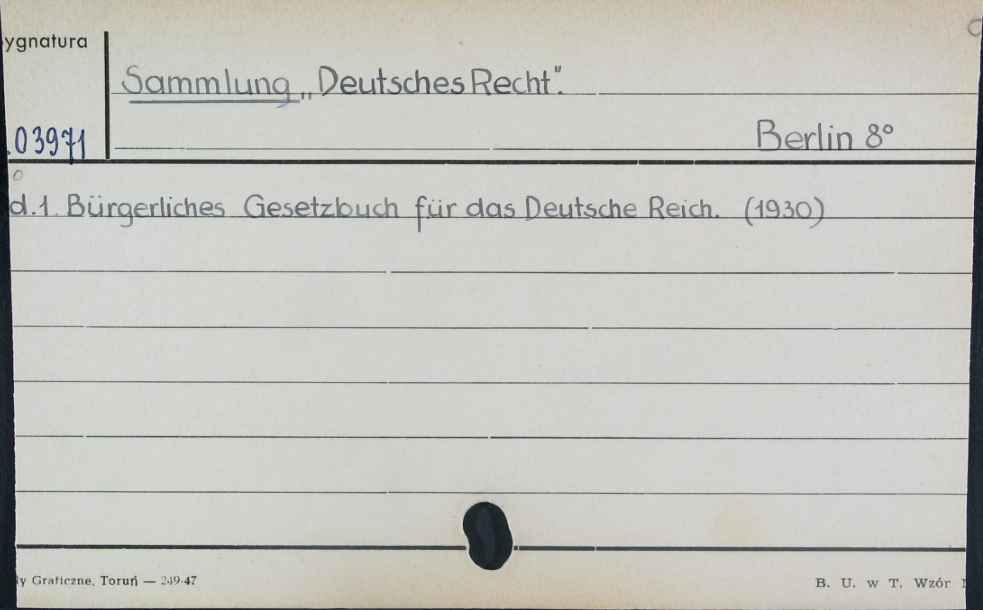 ygnatura
Sammlung „Deutsches Recht".
.03971
Berlin 8°
d.1. Bürgerliches Gesetzbuch für das Deutsche Reich. (1930)
y Graficzne, Toruń — 249-47
B. U. w T. Wzór